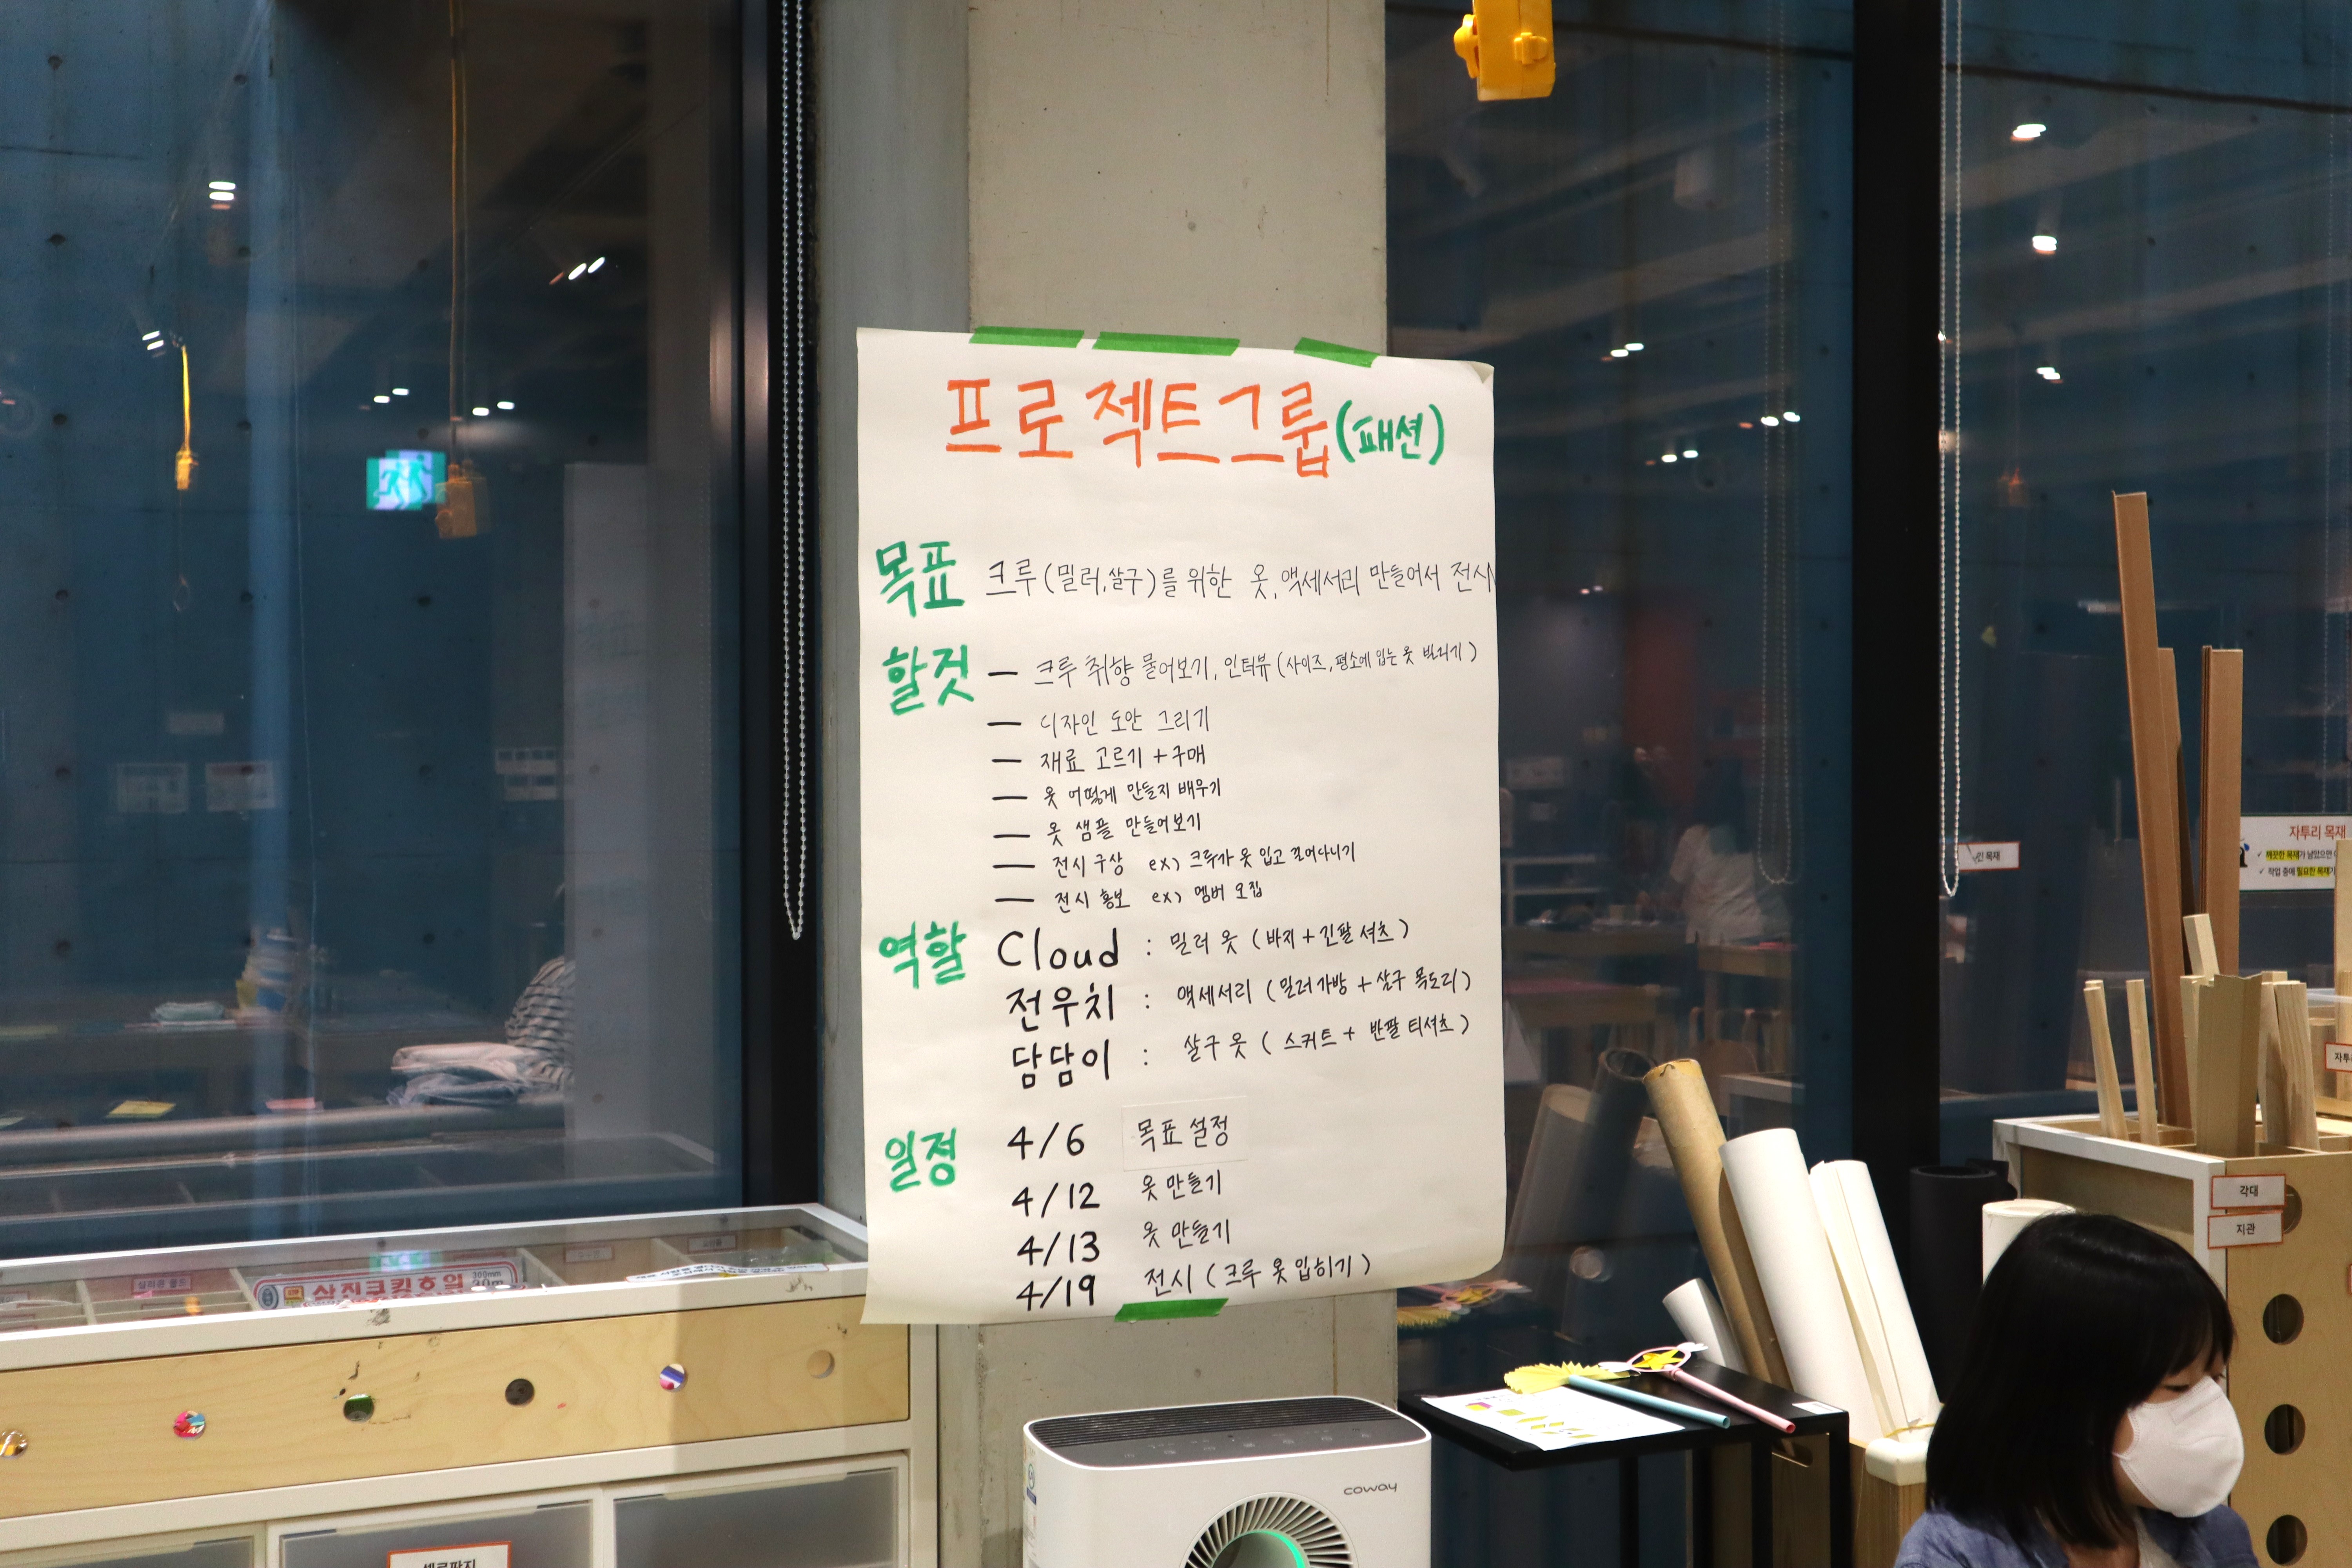 프로젝트그룹(패션)
목표 크루(밀러,살구)를 위한 옷, 액세서리 만들어서 전시
할것 - 크루 취향 물어보기, 인터뷰(사이즈, 평소에 입는 옷 빌리기)
- 디자인 도안 그리기
- 재료 고르기 + 구매
- 옷 어떻게 만들지 배우기
- 옷 샘플 만들어보기
- 전시 구상 ex) 크루가 옷 입고 걸어다니기
- 전시 홍보 ex) 멤버 모집
역할 Cloud : 밀러 옷 (바지+긴팔 셔츠)
전우치 : 액세서리 (밀러가방 + 살구 목도리)
담담이 : 살구 옷 (스커트 + 반팔 티셔츠)
일정 4/6 목표 설정
4/12 옷 만들기
4/13 옷 만들기
4/19 전시 (크루 옷 입히기)
자투리 목재
인 목재
각대
지관
삼진쿠킹호일
300mm
30m
coway